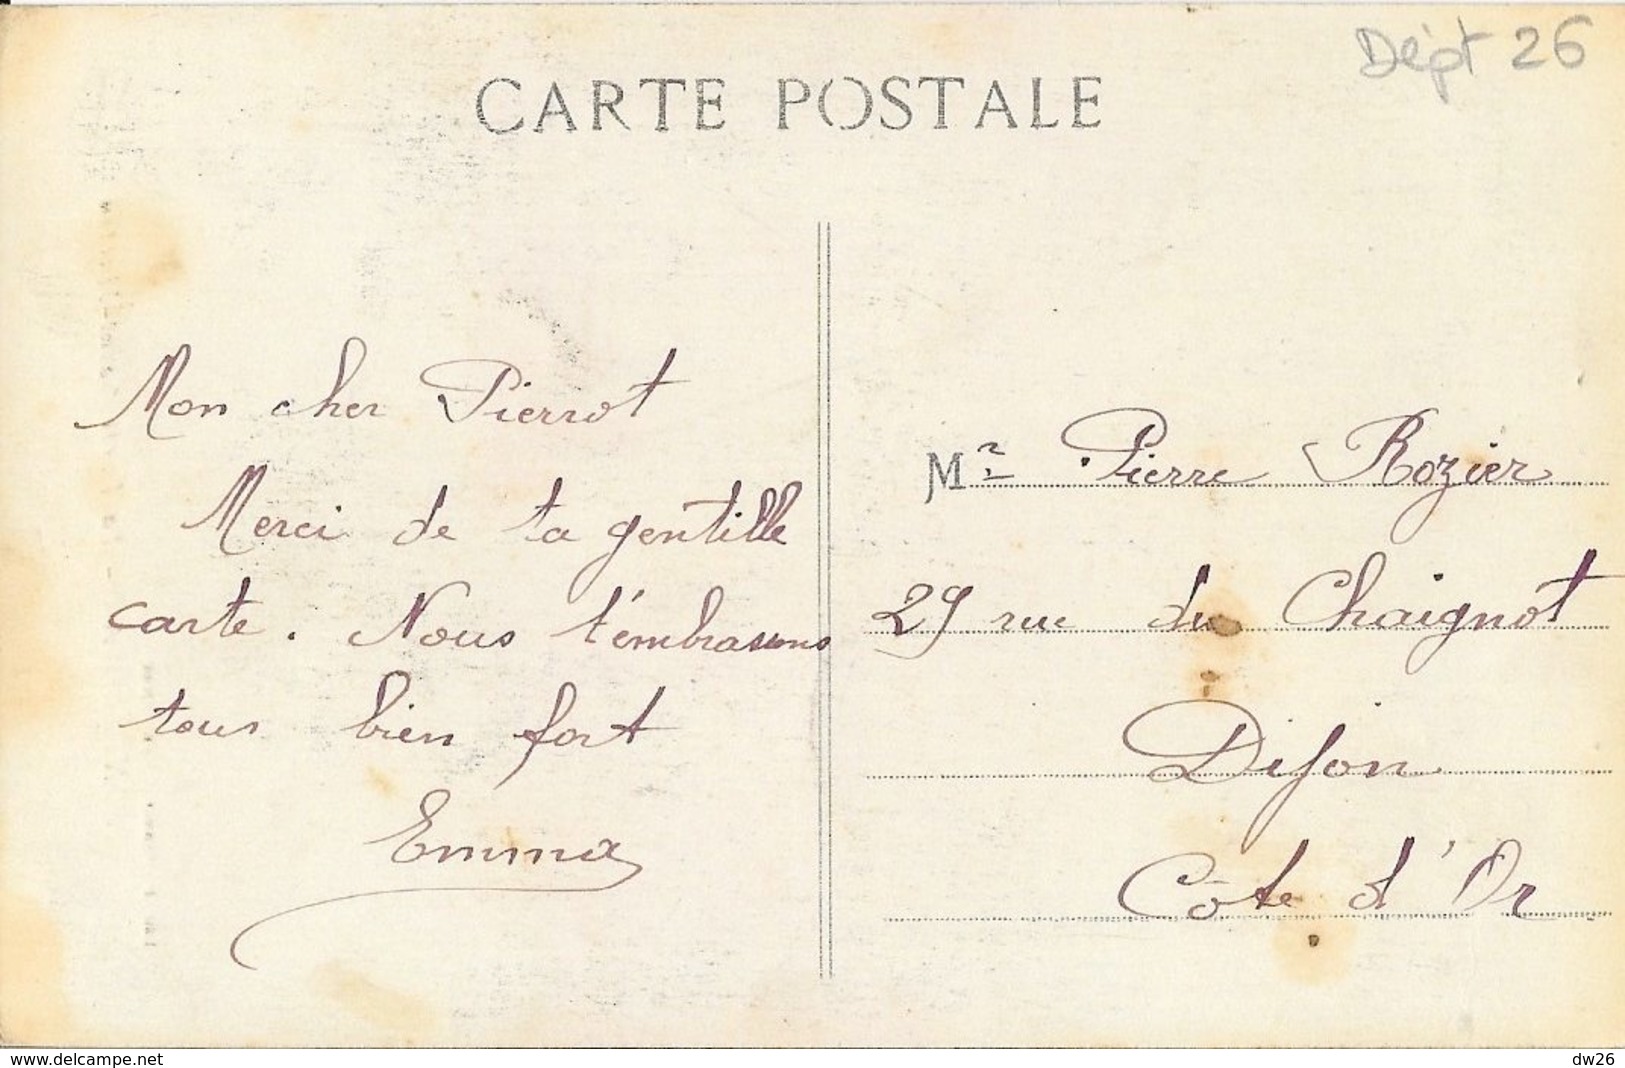 Dépt 26
CARTE POSTALE
Mon cher Pierrot
Merci de ta gentille
carte. Nous t'embrassons
tous bien fort
Emma
Mr Pierre Rozier
29 rue du Chaignot
Dijon
Côte d'Or
www.delcampe.net
dw26